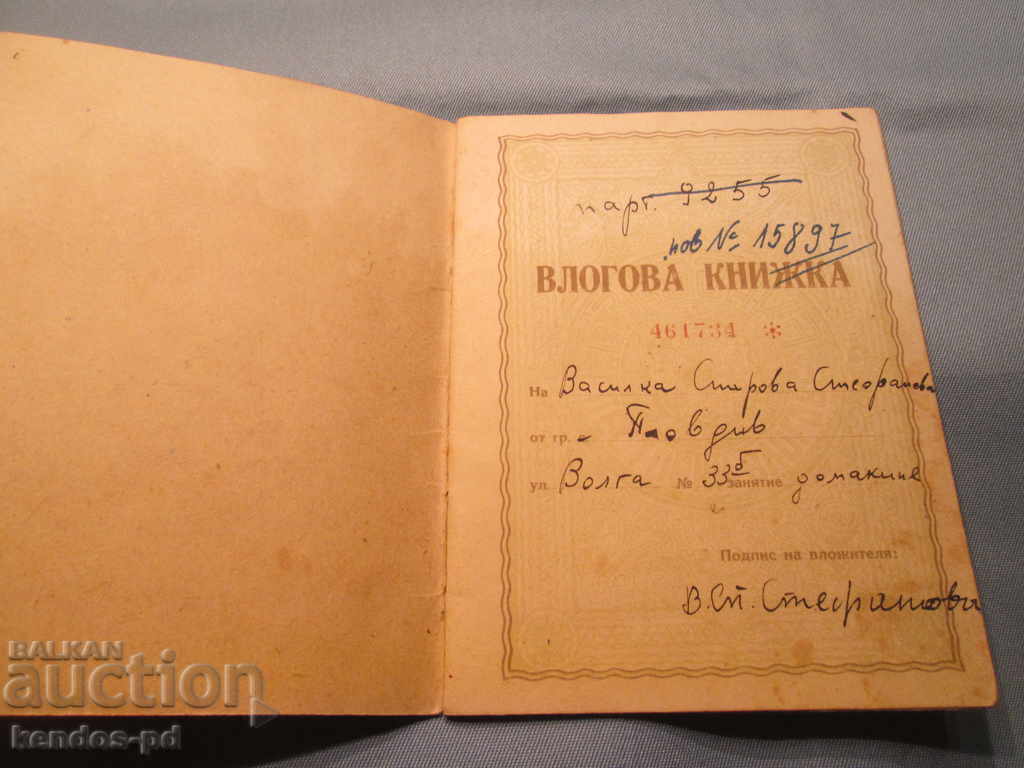 парт. 9255
нов № 15897
ВЛОГОВА КНИЖКА
461734 *
На Василка Спирова Стефанова
от гр. Пловдив
ул. Волга № 33б занятие домакиня
Подпис на вложителя:
В.Сп. Стефанова
BALKAN
auction
kendos-pd